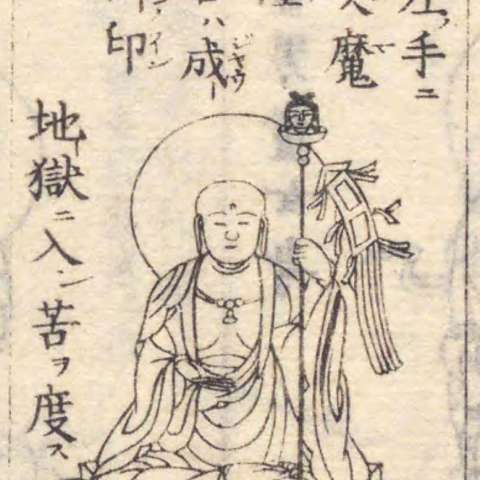 ノ手ニ
魔
ハ成ジャウ
印イン
地獄ニ入ン苦ヲ度ス